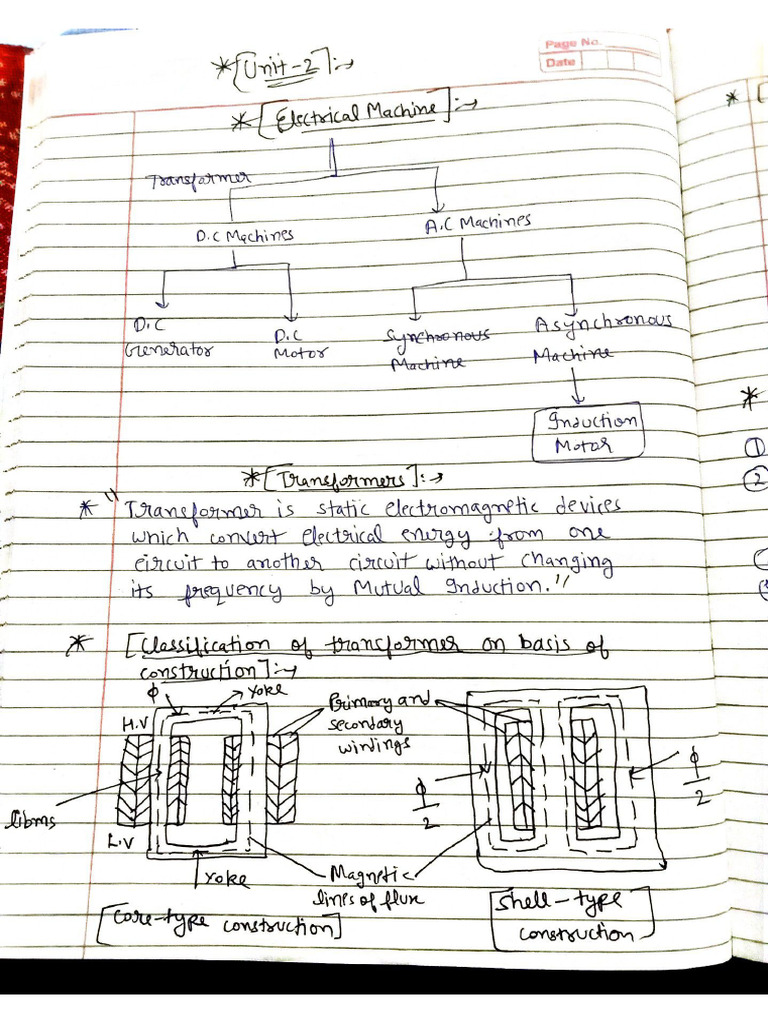 Page No.
Date
*[Unit-2]:→
*[Electrical Machine]:→
Transformer
D.C Machines
A.C Machines
D.C
Generator
D.C
Motor
Synchronous
Machine
Asynchronous
Machine
Induction
Motor
*[Transformers]:→
* "Transformer is static electromagnetic devices
which convert electrical energy from one
circuit to another circuit without changing
its frequency by Mutual Induction."
* [Classification of transformer on basis of
construction]:→
ϕ
Yoke
H.V
Primary and
secondary
windings
libms
L.V
Yoke
Magnetic
lines of flux
ϕ/2
ϕ/2
[Core-type construction]
[Shell-type
construction]
*
[
*
①
②